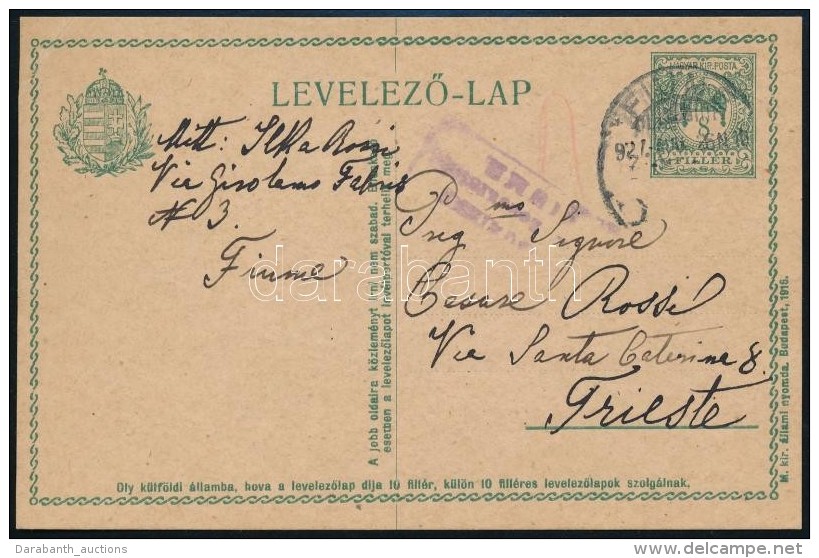 LEVELEZŐ-LAP
MAGYAR KIR. POSTA
8
FILLÉR
Mitt: Ilka Rossi
Via Girolamo Fabris
№ 3.
Fiume
Preg mo Signore
Cesare Rossi
Via Santa Caterina 8.
Trieste
A jobb oldalra közleményt irni nem szabad.
esetben a levelezőlapot levélportóval terhelik meg.
Oly külföldi államba, hova a levelezőlap dija 10 fillér, külön 10 filléres levelezőlapok szolgálnak.
M. kir. állami nyomda. Budapest, 1916.
darabanth
Darabanth_auctions
delcampe.net